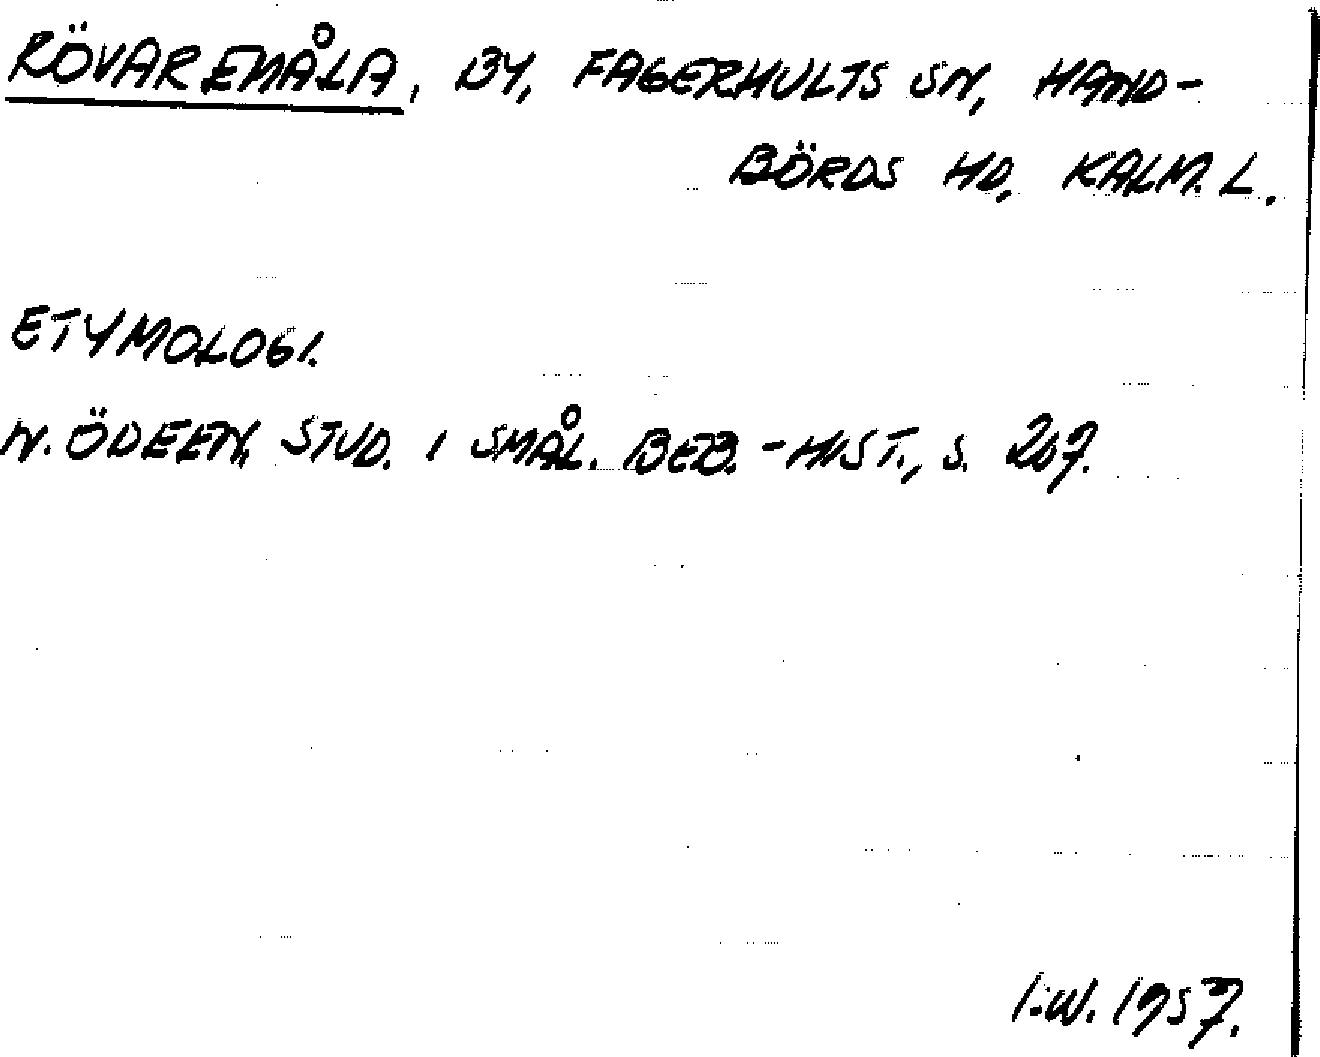 RÖVAREMÅLA, BY, FAGERHULTS SN, HAND-
BÖRDS HD, KALM. L.
ETYMOLOGI.
N. ÖDEEN, STUD. I SMÅL. BEB.-HIST., S. 207.
I.W. 1957.